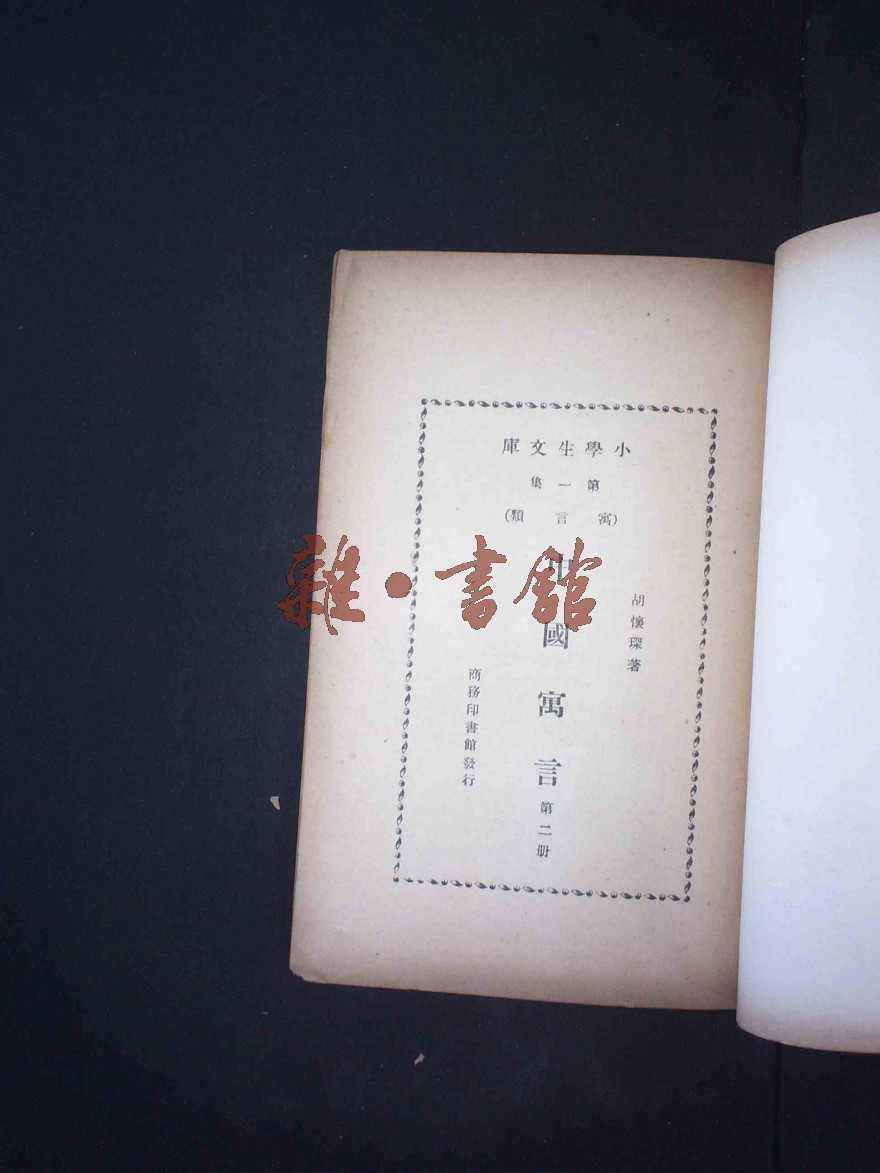 小學生文庫
第一集
(寓言類)
胡懷琛著
中國寓言 第二册
商務印書館發行
雜·書館